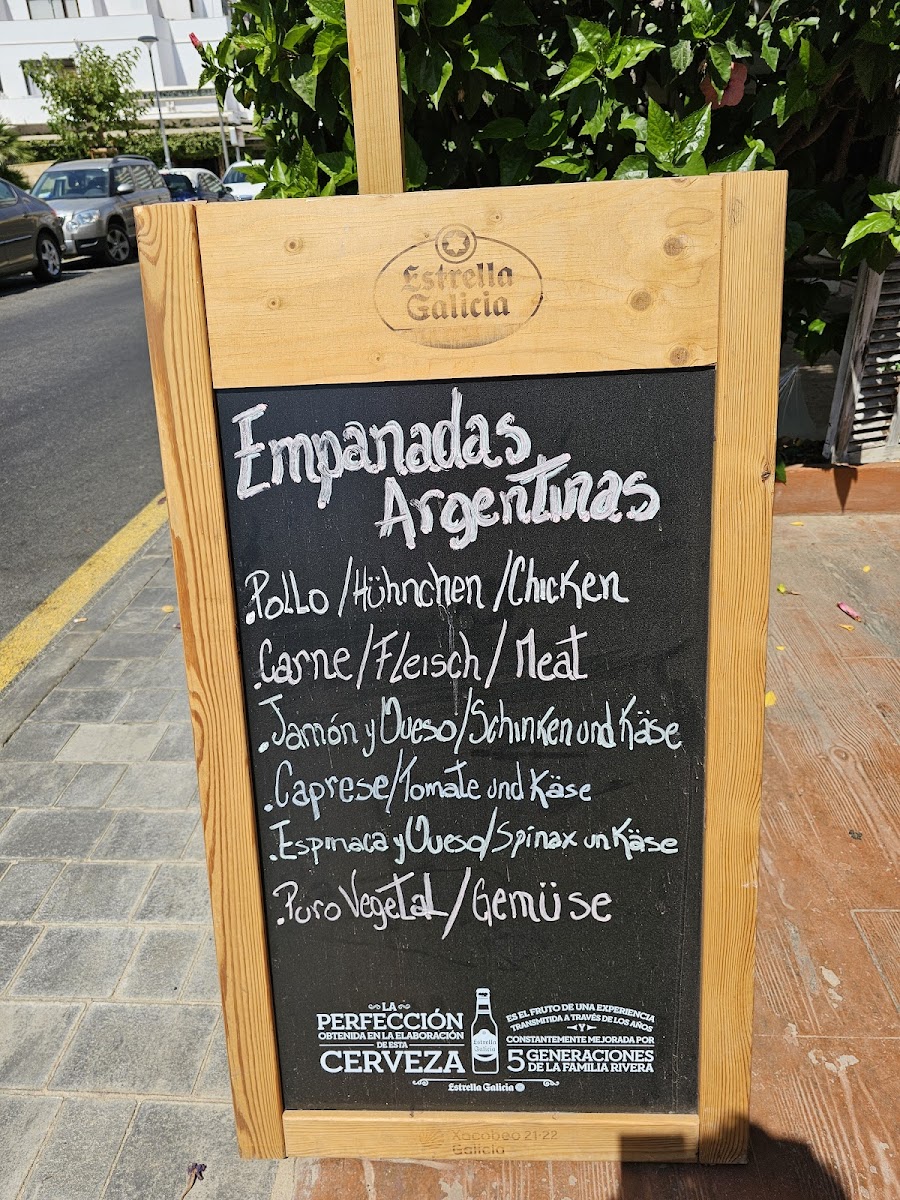 Estrella
Galicia
Empanadas
Argentinas
.Pollo/Hühnchen/Chicken
.Carne/Fleisch/Meat
.Jamón y Queso/Schinken und Käse
.Caprese/Tomate und Käse
.Espinaca y Queso/Spinax un Käse
.Puro Vegetal/Gemüse
LA
PERFECCIÓN
OBTENIDA EN LA ELABORACIÓN
DE ESTA
CERVEZA
Estrella
Galicia
ES EL FRUTO DE UNA EXPERIENCIA
TRANSMITIDA A TRAVÉS DE LOS AÑOS
Y
CONSTANTEMENTE MEJORADA POR
5 GENERACIONES
DE LA FAMILIA RIVERA
Estrella Galicia
Xacobeo 21·22
Galicia